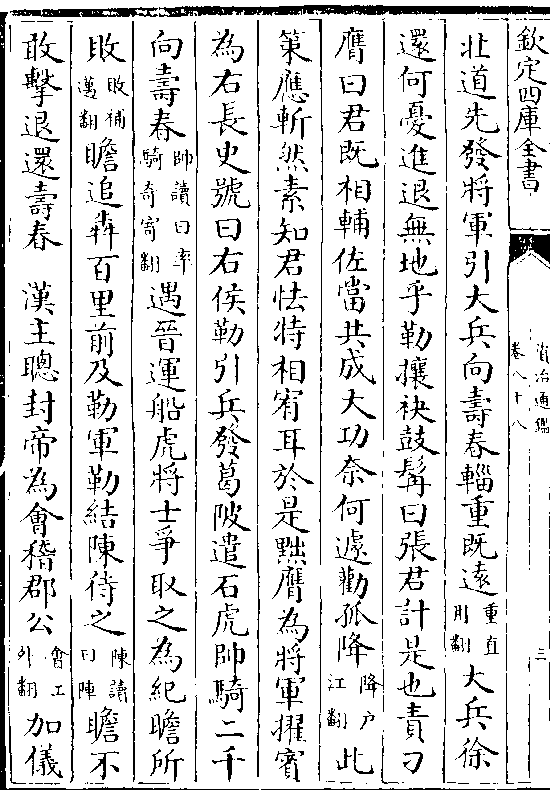 欽定四庫全書
資治通鑑
卷八十八
三
北道先發將軍引大兵向壽春輜重既逺重直用翻大兵徐
還何憂進退無地乎勒攘袂鼓髯曰張君計是也責刁
膺曰君既相輔佐當共成大功奈何遽勸孤降降户江翻此
䇿應斬然素知君怯特相宥耳於是黜膺為將軍擢賓
為右長史號曰右侯勒引兵發葛陂遣石虎帥騎二千
向壽春帥讀曰率騎奇寄翻遇晉運船虎將士爭取之為紀瞻所
敗敗補邁翻瞻追犇百里前及勒軍勒結陳待之陳讀曰陣瞻不
敢擊退還壽春　漢主聰封帝為會稽郡公會工外翻加儀